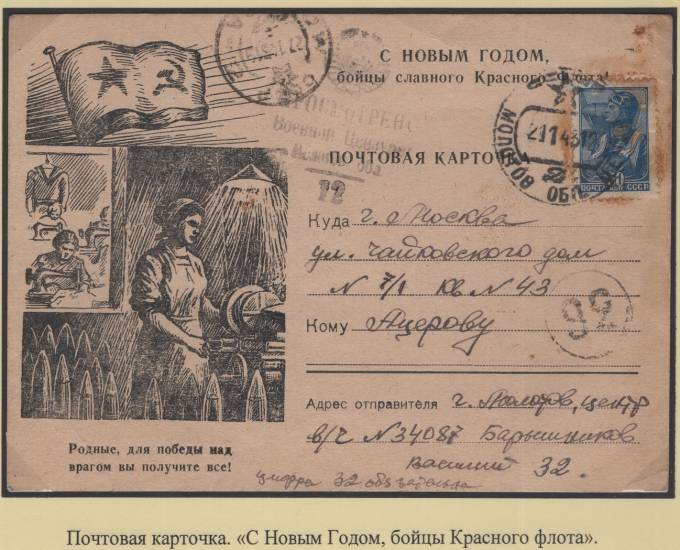 С НОВЫМ ГОДОМ,
бойцы славного Красного Флота!
ПРОСМОТРЕНО
Военной Цензурой
12
ПОЧТОВАЯ КАРТОЧКА
МОЛОТОВ ОБЛ
21 1 43
ПОЧТА СССР
Куда г. Москва
ул. Чайковского дом
N 7/1 кв N 43
Кому Ацерову
Адрес отправителя г. Молотов, центр
в/ч N34087 Барышников
Василий 32.
цифра 32 обязательна
Родные, для победы над
врагом вы получите все!
Почтовая карточка. «С Новым Годом, бойцы Красного флота».